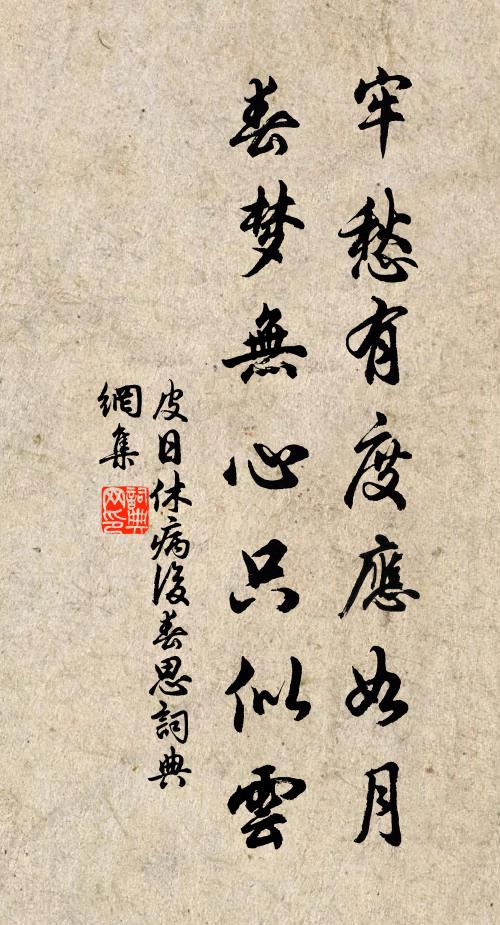 牢愁有度應如月
春梦無心只似雲
皮日休病後春思詞典
網集
詞典
网印